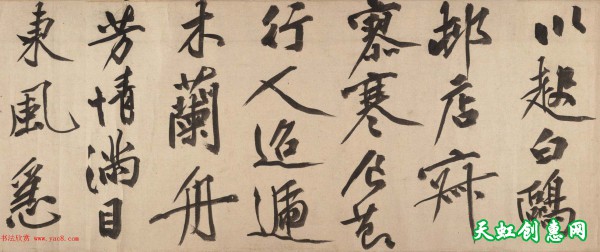 川白鷗
邨店寂
寥寒食莭
行人迢遞
木蘭舟
芳情滿目
東風
书法欣赏 www.yac8.com
天虹创意网